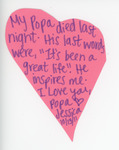 My Popa died last
night. His last words
were, "It's been a
great life." He
inspires me.
I Love you,
Popa ♡
Jessica